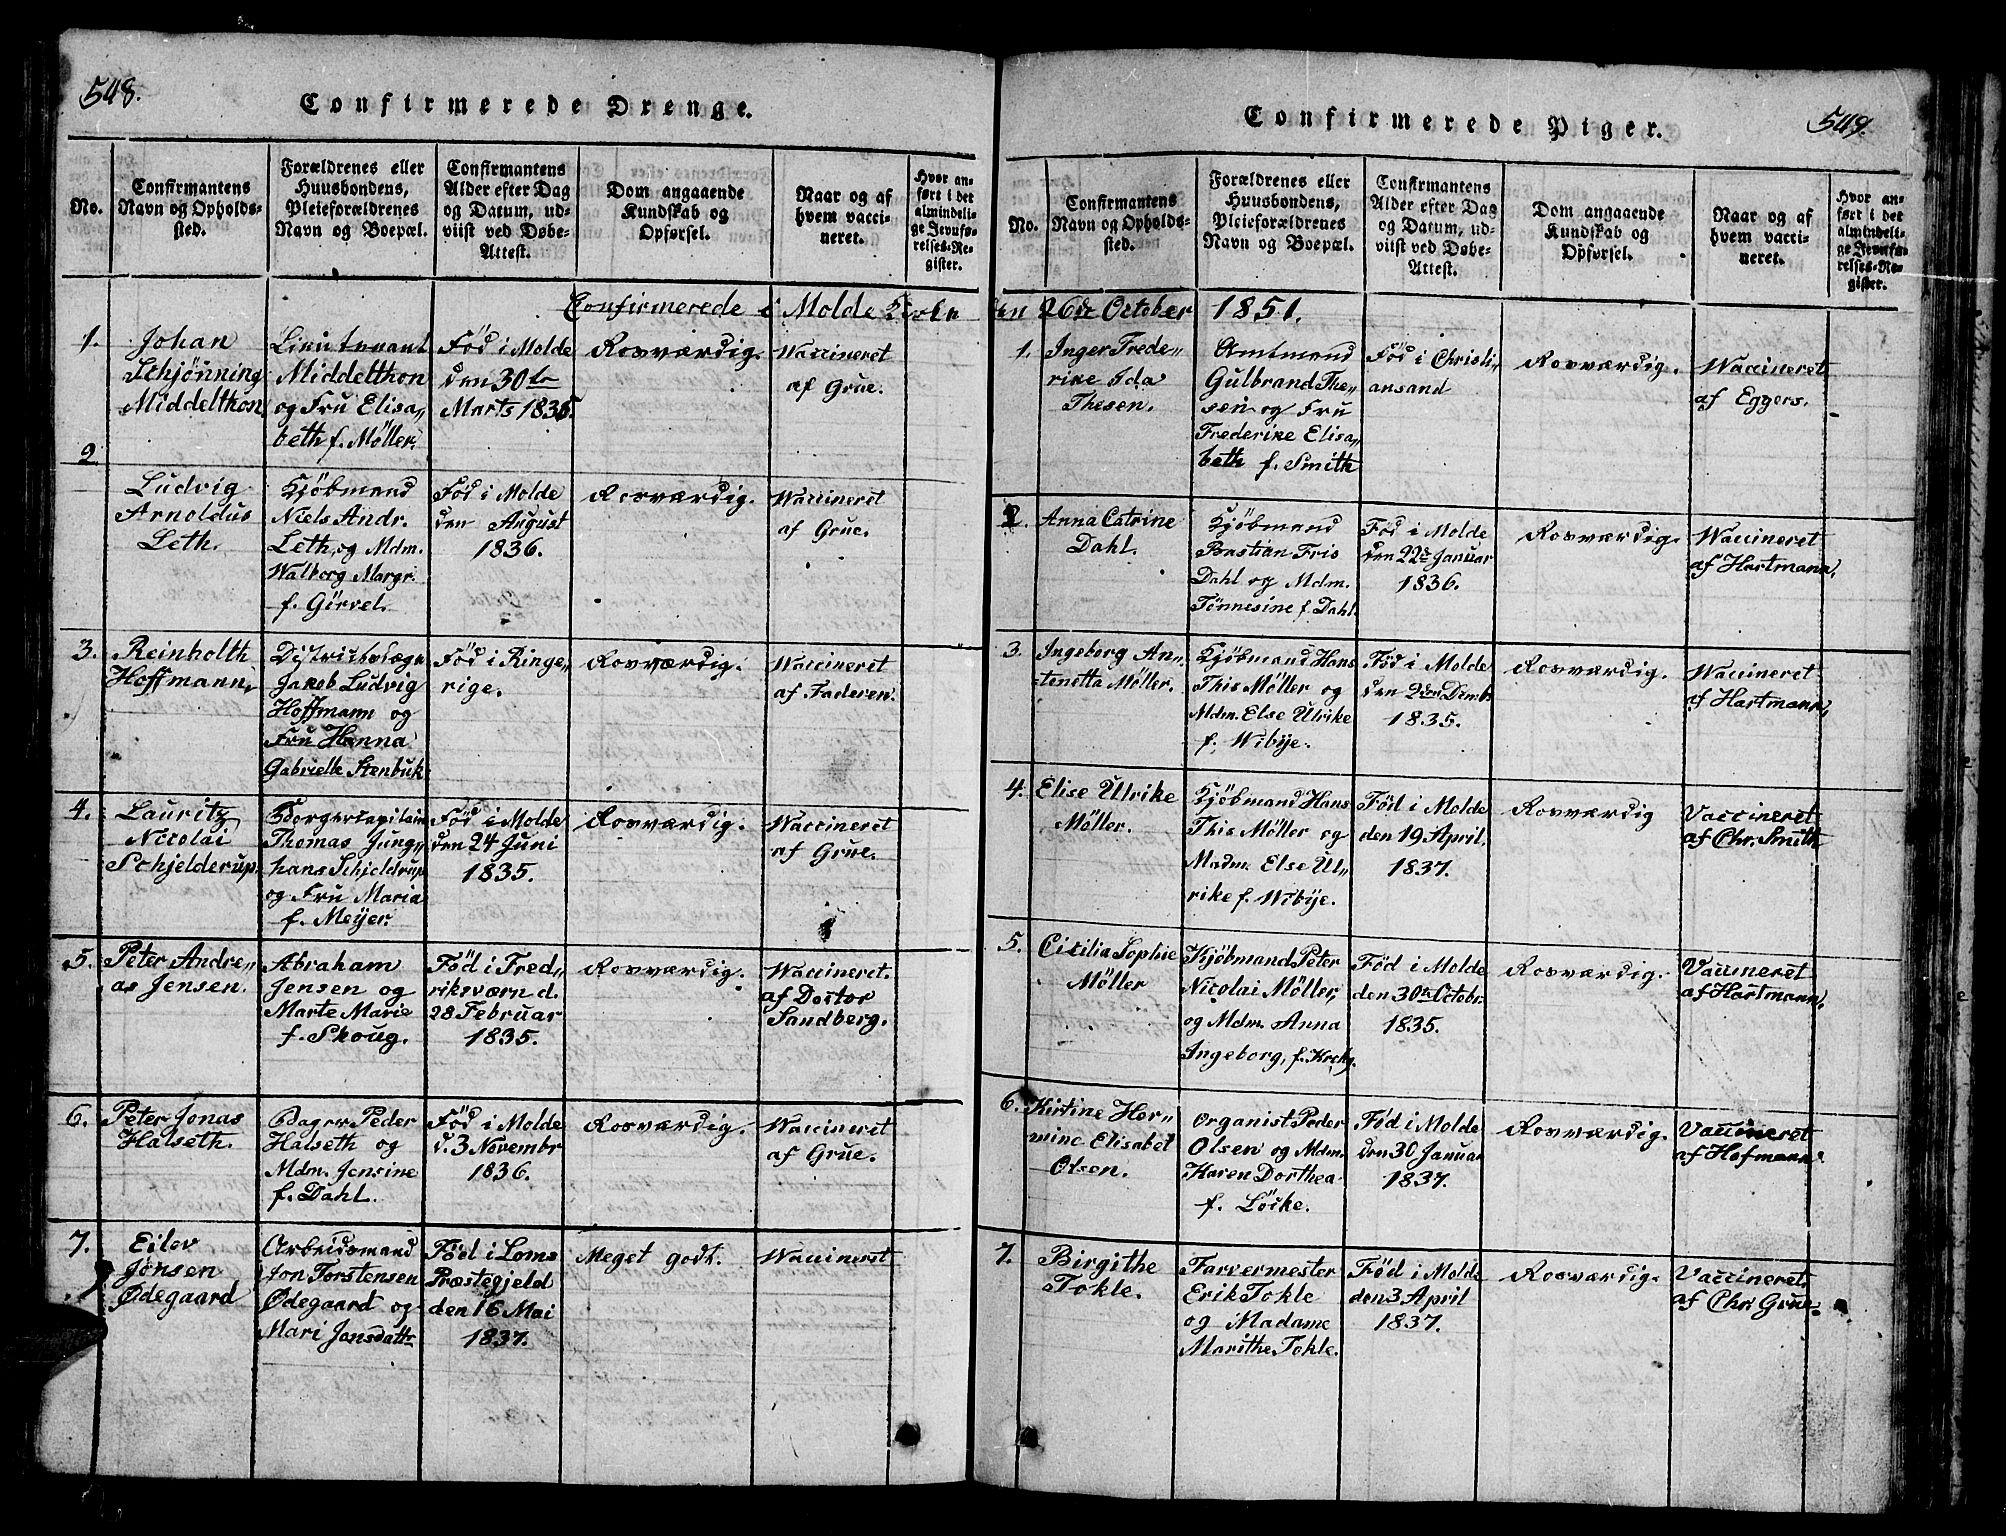 548.
Confirmerede Drenge.
No.
Confirmantens
Navn og Opholds-
sted.
Forældrenes eller
Huusbondens,
Pleieforældrenes
Navn og Boepæl.
Confirmantens
Alder efter Dag
og Datum, ud-
viist ved Døbe-
Attest.
Dom angaaende
Kundskab og
Opførsel.
Naar og af
hvem vacci-
neret.
Hvor an-
ført i det
almindeli-
ge Jevnfø-
relses-Re-
gister.
Confirmerede i Molde Kirke
1.
Johan
Schjønning
Middelthon
Lieutenant
Middelthon
og Fru Elisa„
beth f. Møller.
Fød i Molde
den 30te
Marts 1835.
Rosværdig.
Waccineret
af Grue.
2
Ludvig
Arnoldus
Leth.
Kjöbmand
Niels Andr.
Leth, og Mdm.
Walborg Margr.
f. Girvel.
Fød i Molde
den August
1836.
Rosværdig.
Waccineret
af Grue.
3.
Reinholth
Hoffmann.
Districtslæge
Jakob Ludvig
Hoffmann og
Fru Hanna
Gabrielle Stenbuk
Fød i Ringe„
rige.
Rosværdig.
Waccineret
af Faderen.
4.
Lauritz
Nicolai
Schjelderup.
Borgercapitain
Thomas Jung„
hans Schjeldrup
og Fru Maria
f. Meyer.
Fød i Molde
den 24 Juni
1835.
Rosværdig.
Waccineret
af Grue.
5.
Peter Andre„
as Jensen.
Abraham
Jensen og
Marte Marie
f. Skoug.
Fød i Fred„
riksværn d.
28 Februar
1835.
Rosværdig.
Waccineret.
af Doctor
Sandberg.
6.
Peter Jonas
Halseth.
Bager Peder
Halseth og
Mdm. Jensine
f. Dahl.
Fød i Molde
d. 3 Novembr
1836.
Rosværdig.
Waccineret
af Grue.
7.
Eilev
Jonsen
Ødegaard
Arbeidsmand
Jon Torstensen
Ødegaard og
Mari Jonsdattr
Fød i Loms
Præstegjeld
den 16 Mai
1837.
Meget godt.
Waccineret
549.
Confirmerede Piger.
No.
Confirmantens
Navn og Opholds-
sted.
Forældrenes eller
Huusbondens,
Pleieforældrenes
Navn og Boepæl.
Confirmantens
Alder efter Dag
og Datum, ud-
viist ved Døbe-
Attest.
Dom angaaende
Kundskab og
Opførsel.
Naar og af
hvem vacci-
neret.
Hvor an-
ført i det
almindeli-
ge Jevnfø-
relses-Re-
gister.
den 26de October 1851.
1.
Inger Frede„
rike Ida
Thesen.
Amtmand
Gulbrand The„
sen og Fru
Frederike Elisa„
beth f. Smith
Fød i Christi„
ansand
Rosværdig.
Waccineret
af Eggers.
2.
Anna Catrine
Dahl.
Kjöbmand
Bastian Fris
Dahl og Mdm.
Tönnesine f. Dahl.
Fød i Molde
den 22de Januar
1836.
Rosværdig.
Waccineret
af Hartmann.
3.
Ingeborg An„
tonetta Møller.
Kjöbmand Hans
This Møller og
Mdm. Else Ulrike
f. Wibye.
Fød i Molde
den 2den Dcmbr
1835.
Rosværdig.
Waccineret
af Hartmann.
4.
Elise Ulrike
Møller.
Kjöbmand Hans
This Møller og
Madm. Else Ul„
rike f. Wibye.
Fød i Molde
den 19 April.
1837.
Rosværdig
Vaccineret
af Chr. Smith
5.
Cicilia Sophie
Møller
Kjöbmand Peter
Nicolai Møller,
og Mdm. Anna
Ingeborg, f. Krohg.
Fød i Molde
den 30te Octobr.
1835.
Rosværdig.
Vaccineret
af Hartmann.
6.
Kirtine Her„
mine Elisabet
Olsen.
Organist Peder
Olsen og Mdm.
Karen Dorthea
f. Löcke.
Fød i Molde
den 30 Januar
1837.
Rosværdig.
Vaccineret
af Hofmann
7.
Birgithe
Tokle.
Farvermester
Erik Tokle
og Madame
Marithe Tokle.
Fød i Molde
den 3 April
1837.
Rosværdig.
Vaccineret
af Chr Grue.